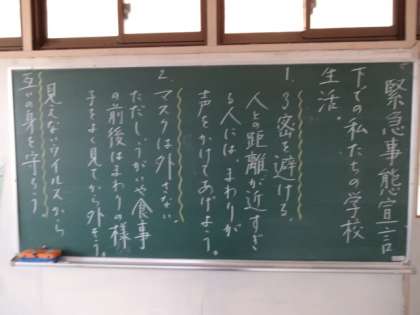 緊急事態宣言
下での私たちの学校
生活。
1. 3密を避ける。
人との距離が近すぎ
る人には、まわりが
声をかけてあげよう。
2. マスクは外さない。
ただし、うがいや食事
の前後はまわりの様
子をよく見てから外そう。
見えないウイルスから
互いの身を守ろう。